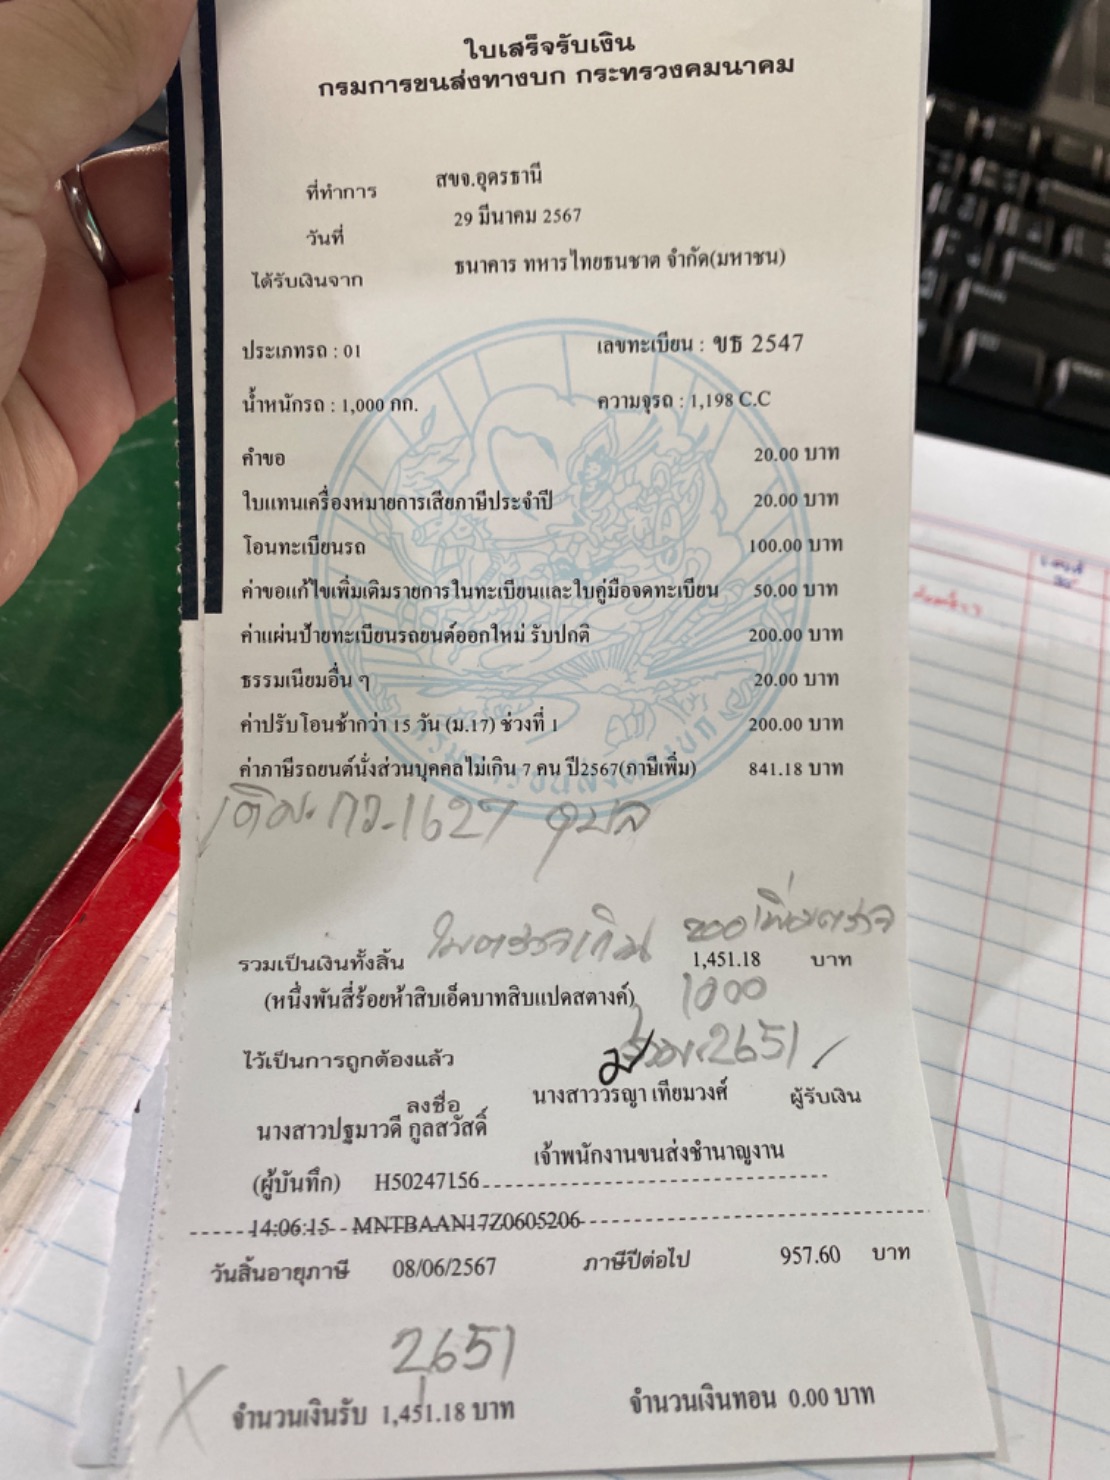 ใบเสร็จรับเงิน
กรมการขนส่งทางบก กระทรวงคมนาคม
ที่ทำการ สขจ.อุดรธานี
วันที่ 29 มีนาคม 2567
ได้รับเงินจาก ธนาคาร ทหารไทยธนชาต จำกัด(มหาชน)
ประเภทรถ : 01 เลขทะเบียน : ขธ 2547
น้ำหนักรถ : 1,000 กก. ความจุรถ : 1,198 C.C
คำขอ 20.00 บาท
ใบแทนเครื่องหมายการเสียภาษีประจำปี 20.00 บาท
โอนทะเบียนรถ 100.00 บาท
ค่าขอแก้ไขเพิ่มเติมรายการในทะเบียนและใบคู่มือจดทะเบียน 50.00 บาท
ค่าแผ่นป้ายทะเบียนรถยนต์ออกใหม่ รับปกติ 200.00 บาท
ธรรมเนียมอื่น ๆ 20.00 บาท
ค่าปรับโอนช้ากว่า 15 วัน (ม.17) ช่วงที่ 1 200.00 บาท
ค่าภาษีรถยนต์นั่งส่วนบุคคลไม่เกิน 7 คน ปี2567(ภาษีเพิ่ม) 841.18 บาท
กรมการขนส่งทางบก
เดิม กว-1627 อุบล
ใบตรวจเกิน 200
รวมเป็นเงินทั้งสิ้น 1,451.18 บาท
(หนึ่งพันสี่ร้อยห้าสิบเอ็ดบาทสิบแปดสตางค์) 1000
ไว้เป็นการถูกต้องแล้ว รวม 2651
ลงชื่อ นางสาววรญา เทียมวงศ์ ผู้รับเงิน
นางสาวปฐมาวดี กูลสวัสดิ์
เจ้าพนักงานขนส่งชำนาญงาน
(ผู้บันทึก) H50247156
14:06:15 MNTBAAN17Z0605206
วันสิ้นอายุภาษี 08/06/2567 ภาษีปีต่อไป 957.60 บาท
2651
X จำนวนเงินรับ 1,451.18 บาท จำนวนเงินทอน 0.00 บาท